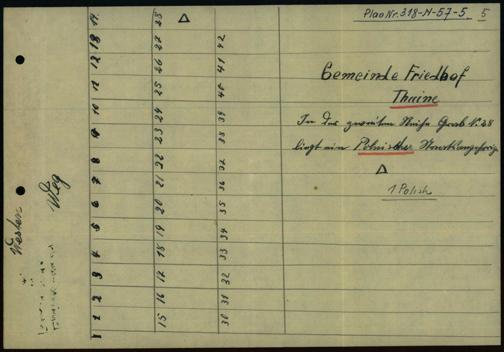 Plan Nr. 318-N-57-5 5
Gemeinde Friedhof
Thuine
In der zweiten Reihe Grab Nr. 28
liegt ein Polnischer Staatsangehörige
Δ
1 Polish
Westen
Weg
1 2 3 4 5 6 7 8 9 10 11 12 13 14
15 16 17 18 19 20 21 22 23 24 25 26 27 28 Δ
30 31 32 33 34 35 36 37 38 39 40 41 42